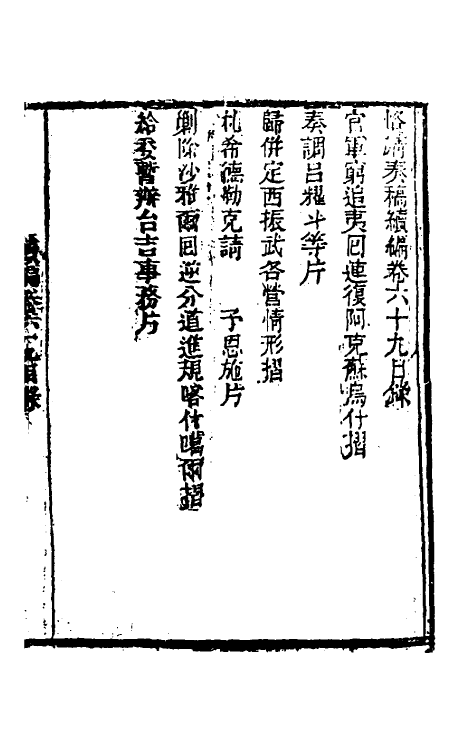 恪靖奏稿續編卷六十九目錄
官軍窮追夷回連復阿克蘇烏什摺
奏調呂耀斗等片
歸併定西振武各營情形摺
札希德勒克請　予恩施片
剿除沙雅爾回逆分道進規喀什噶爾摺
給委暫辦台吉事務片
續編卷六十九目錄